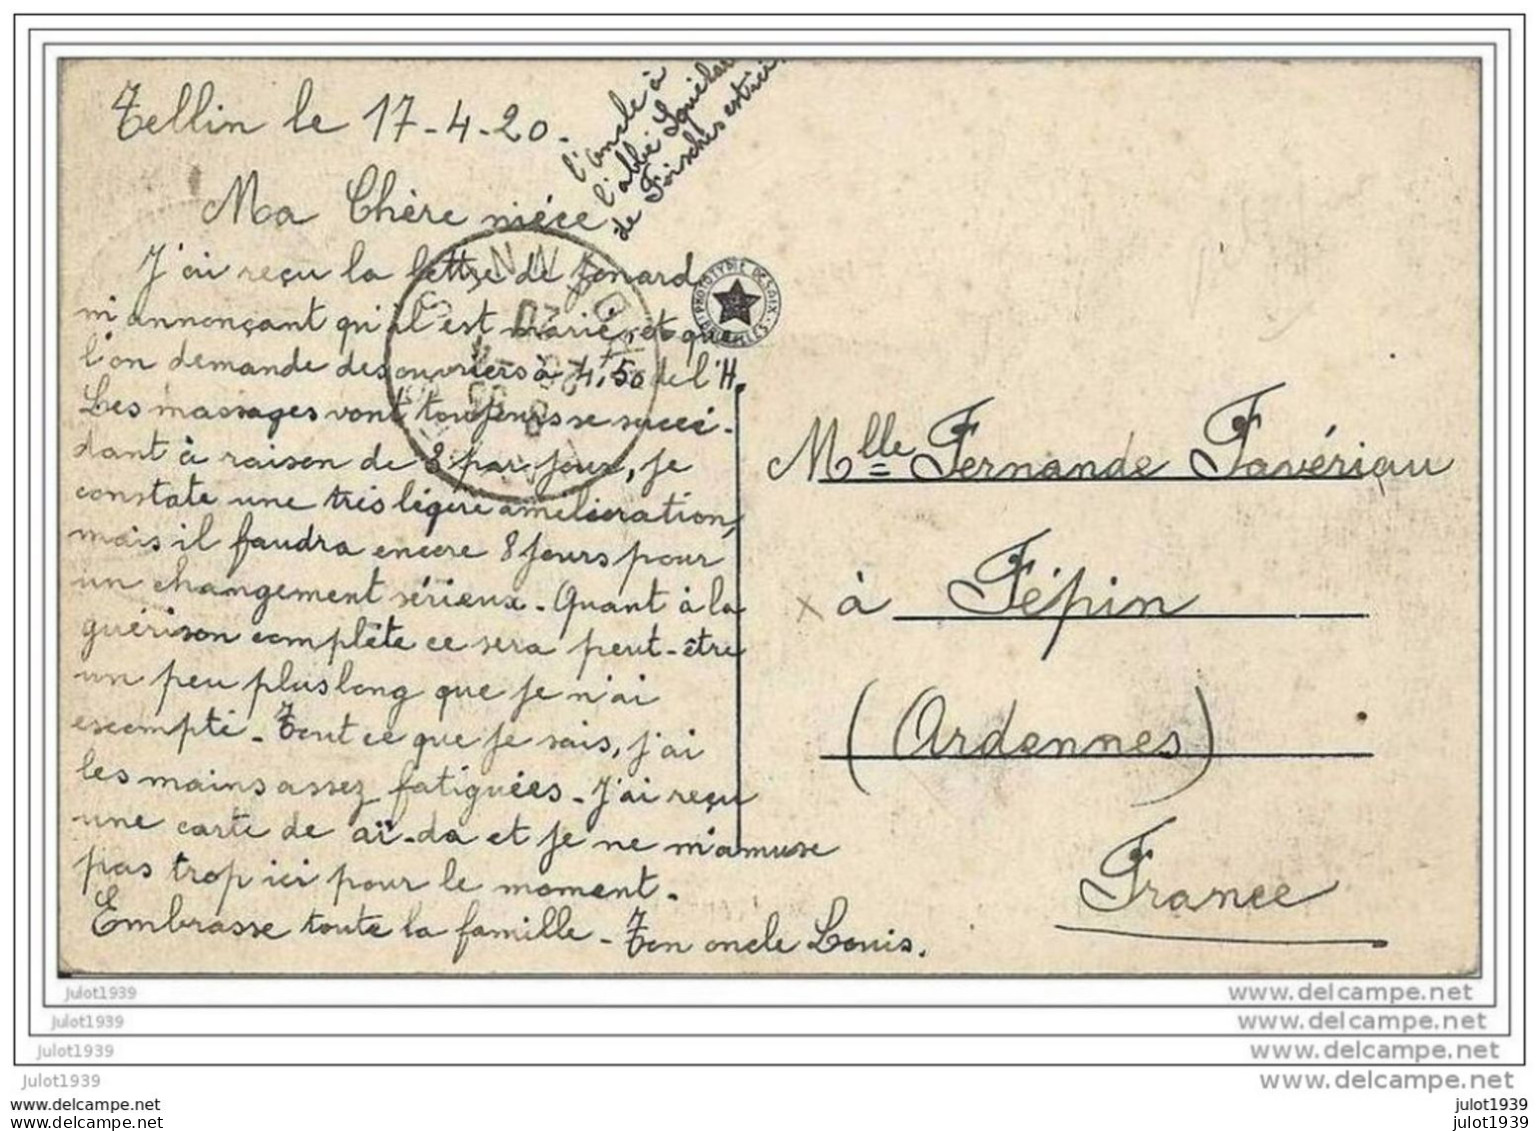 Tellin le 17-4-20.
l'oncle à
l'abbé
de Foisches est ici.
Ma Chère nièce
J'ai reçu la lettre de
m'annonçant qu'il est marié, et que
l'on demande des ouvriers à 4,50 de l'H.
Les massages vont toujours se succé-
dant à raison de 8 par jour, je
constate une très légère amélioration,
mais il faudra encore 8 jours pour
un changement sérieux. Quant à la
guérison complète ce sera peut-être
un peu plus long que je n'ai
escompté. Tout ce que je sais, j'ai
les mains assez fatiguées. J'ai reçu
une carte de aï-da et je ne m'amuse
pas trop ici pour le moment.
Embrasse toute la famille. Ton oncle Louis.
PHOTOTYPIE DESAIX
BRUXELLES
Mlle Fernande Favériau
à Fépin
(Ardennes)
France
julot1939 www.delcampe.net
julot1939 www.delcampe.net
julot1939 www.delcampe.net
julot1939 www.delcampe.net
www.delcampe.net julot1939
www.delcampe.net julot1939